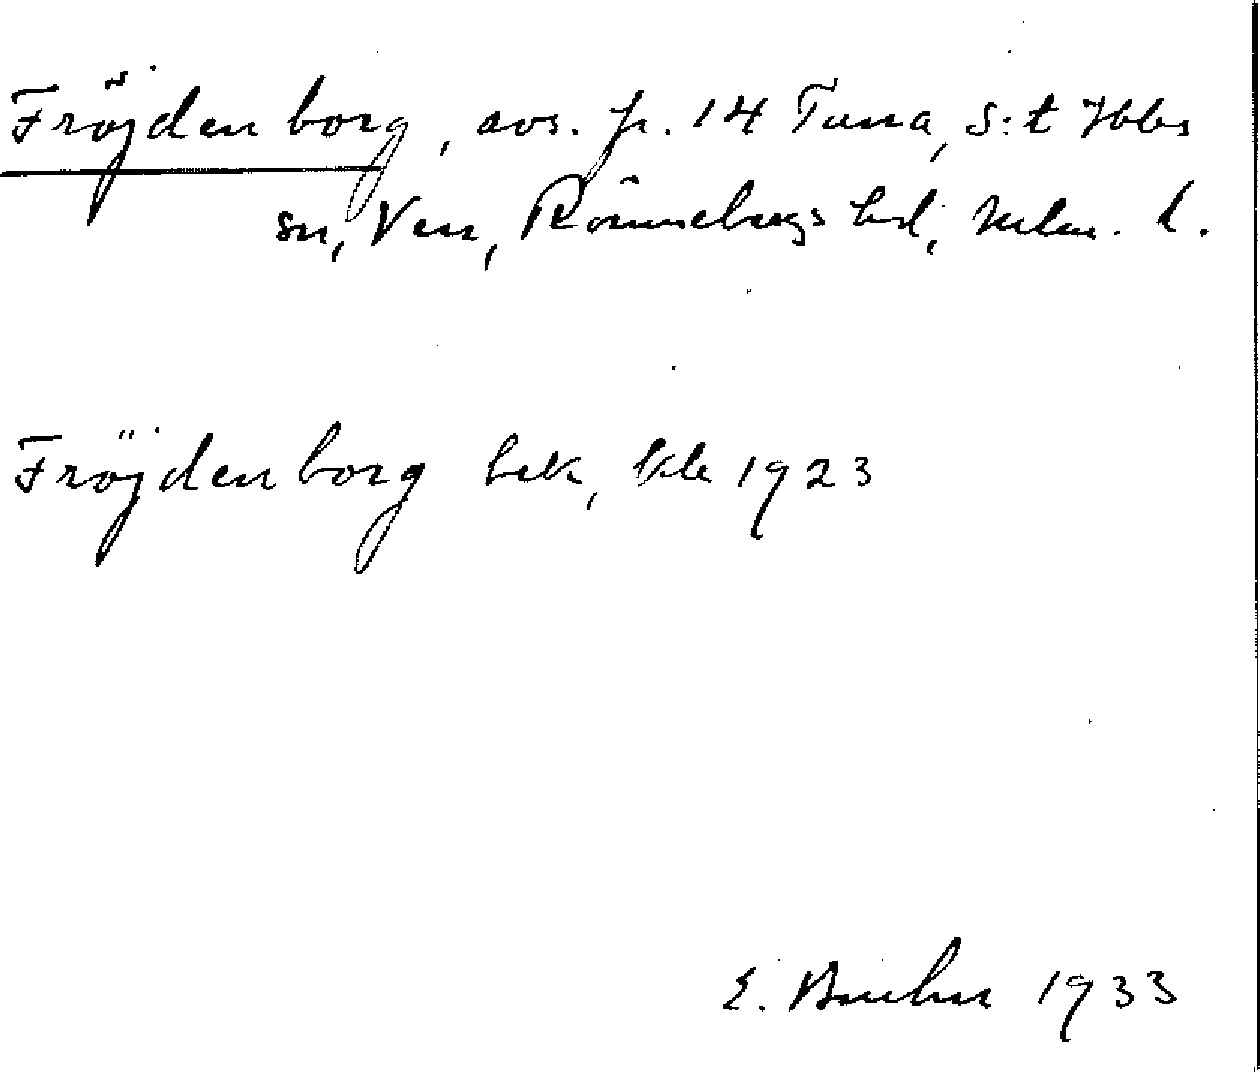 Fröjdenborg, avs. fr. 14 Tuna, S:t Ibbs
sn, Ven, Rönnebergs hd, Mlm. l.
Fröjdenborg bek, kle 1923
E. 1933